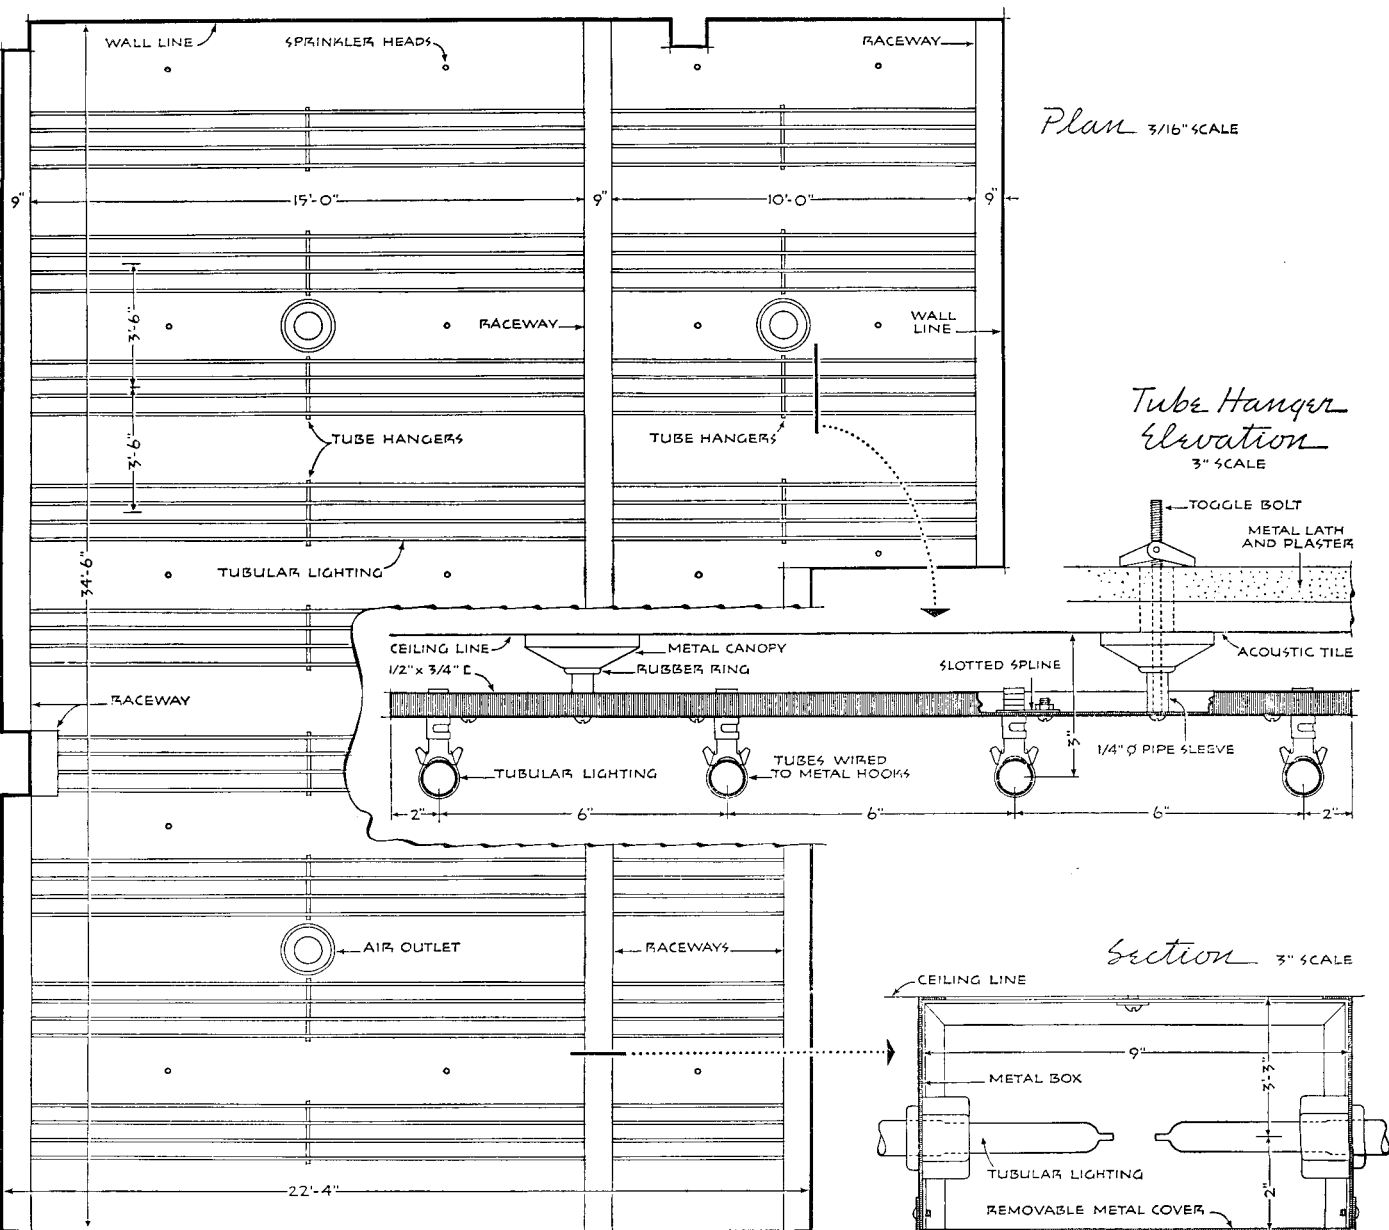 WALL LINE
SPRINKLER HEADS
RACEWAY
Plan 3/16" SCALE
9"
15'-0"
9"
10'-0"
9"
3'-6"
RACEWAY
WALL
LINE
3'-6"
TUBE HANGERS
TUBE HANGERS
Tube Hanger
Elevation
3" SCALE
TOGGLE BOLT
METAL LATH
AND PLASTER
34'-6"
TUBULAR LIGHTING
CEILING LINE
METAL CANOPY
ACOUSTIC TILE
1/2" x 3/4" [
RUBBER RING
SLOTTED SPLINE
RACEWAY
3"
1/4" Ø PIPE SLEEVE
TUBULAR LIGHTING
TUBES WIRED
TO METAL HOOKS
2"
6"
6"
6"
2"
AIR OUTLET
RACEWAYS
Section 3" SCALE
CEILING LINE
9"
3'-3"
METAL BOX
TUBULAR LIGHTING
2"
22'-4"
REMOVABLE METAL COVER